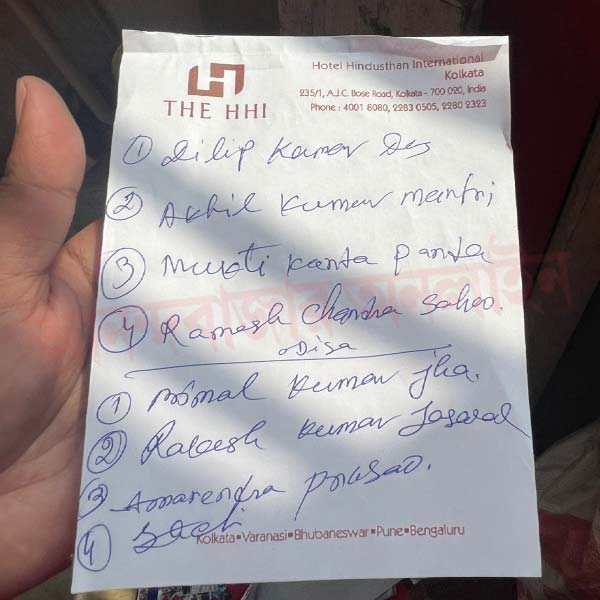 THE HHI
Hotel Hindusthan International
Kolkata
235/1, A.J.C. Bose Road, Kolkata - 700 020, India
Phone : 4001 8080, 2283 0505, 2280 2323
① Dilip Kumar Das
② Akhil Kumar mantri
③ Murati Kanta Panda
④ Ramesh Chandra Sahoo.
odisa
① Nirmal Kumar Jha.
② Rakesh Kumar
③ Amarendra Prasad.
④
Kolkata▪Varanasi▪Bhubaneswar▪Pune▪Bengaluru
আনন্দবাজার অনলাইন